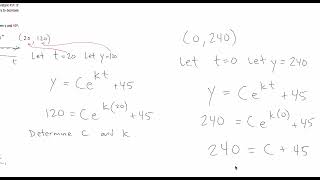 (20, 120)
Let t=20 Let y=120
y = Ce^{kt} + 45
120 = Ce^{k(20)} + 45
Determine C and k
(0, 240)
Let t=0 Let y=240
y = Ce^{kt} + 45
240 = Ce^{k(0)} + 45
240 = C + 45